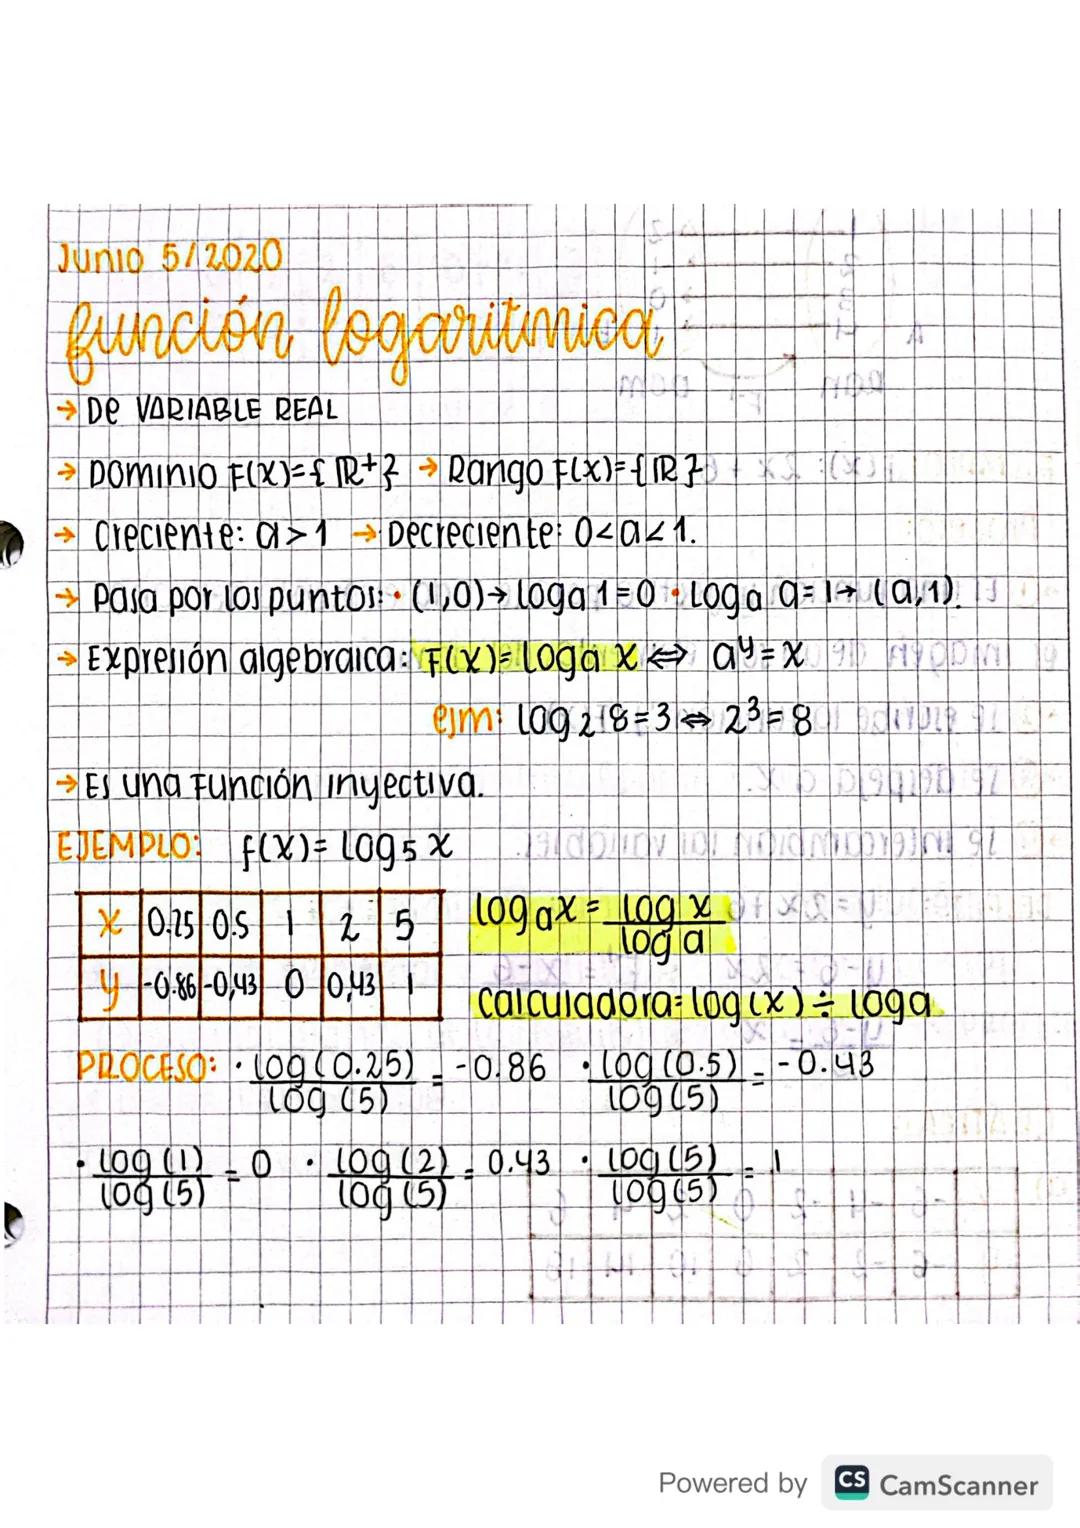 Junio 5/2020
función logaritmica
→ De VARIABLE REAL
→ Dominio F(x)={ℝ+} → Rango F(x)={ℝ}
→ Creciente: a>1 → Decreciente: 0<a<1.
→ Pasa por los puntos: · (1,0)→ loga 1=0 · Loga a=1→ (a,1).
→ Expresión algebraica: F(x)= Loga x ⇔ a^y=x
ejm: log₂ 8=3 ⇔ 2³=8
→ Es una Función inyectiva.
EJEMPLO: f(x)= log₅ x
x 0.25 0.5 1 2 5
y -0.86 -0,43 0 0,43 1
log a x = log x / log a
calculadora= log(x) ÷ loga
PROCESO: · log(0.25) / log(5) = -0.86 · log(0.5) / log(5) = -0.43
· log(1) / log(5) = 0 · log(2) / log(5) = 0.43 · log(5) / log(5) = 1
Powered by CS CamScanner